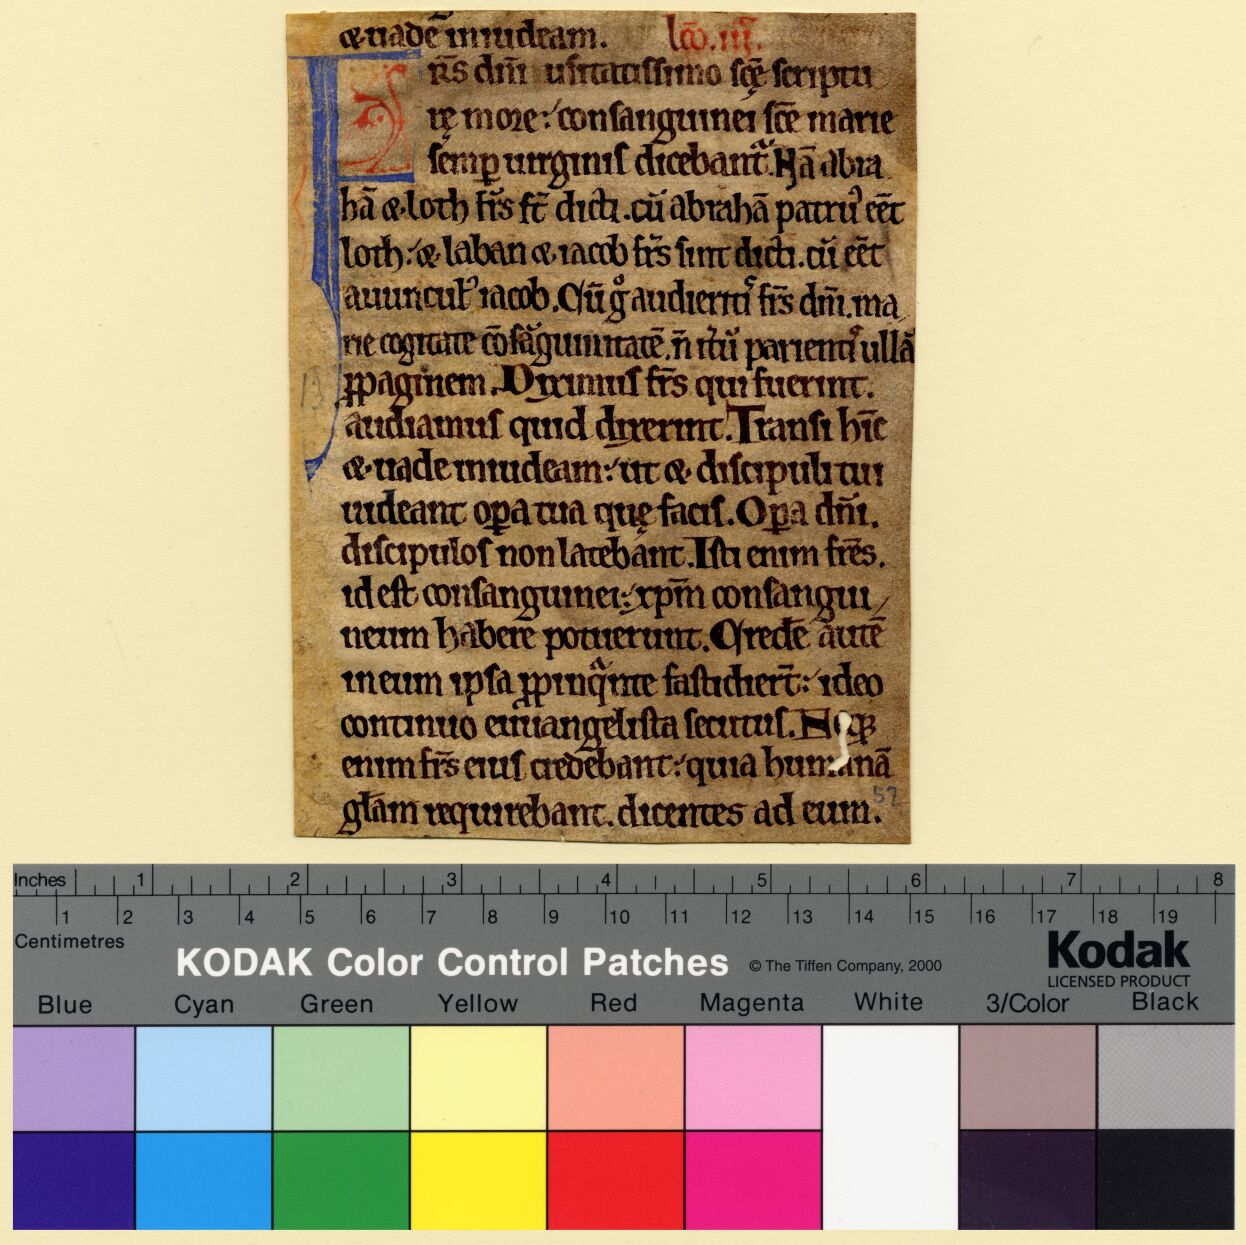 & uadē in iudeam. lc̄o. iii.
Fr̄s dn̄i usitatissimo sc̄ę scriptu
rę more: consanguinei sc̄e marie
semꝑ uirginis dicebantᷓ. Nā abra
hā & loth fr̄s st̄ dicti. cū abrahā patruꝰ eēt
loth: & laban & iacob fr̄s sunt dicti. cū eēt
auunculꝰ iacob. Cū gͦ audieritꝭ fr̄s dn̄i. ma
rie cogitate cōsāguinitatē. n̄ itͥū parientꝭ ullā
ꝓpaginem. Diximus fr̄s qui fuerint.
audiamus quid dixerint. Transi hīc
& uade in iudeam: ut & discipuli tui
uideant oꝑa tua quę facis. Oꝑa dn̄i.
discipulos non latebant. Isti enim fr̄es.
id est consanguinei: xp̄m consangui
neum habere potuerunt. Credē autē
in eum ipsa ꝓpinqͣtite fastidier̄t: ideo
continuo euuangelista secutus. Neqꝫ
enim fr̄s eius credebant: quia humanā
gl̄am requirebant. dicentes ad eum.
13
57
Inches 1 2 3 4 5 6 7 8
1 2 3 4 5 6 7 8 9 10 11 12 13 14 15 16 17 18 19
Centimetres
KODAK Color Control Patches © The Tiffen Company, 2000 Kodak
LICENSED PRODUCT
Blue Cyan Green Yellow Red Magenta White 3/Color Black